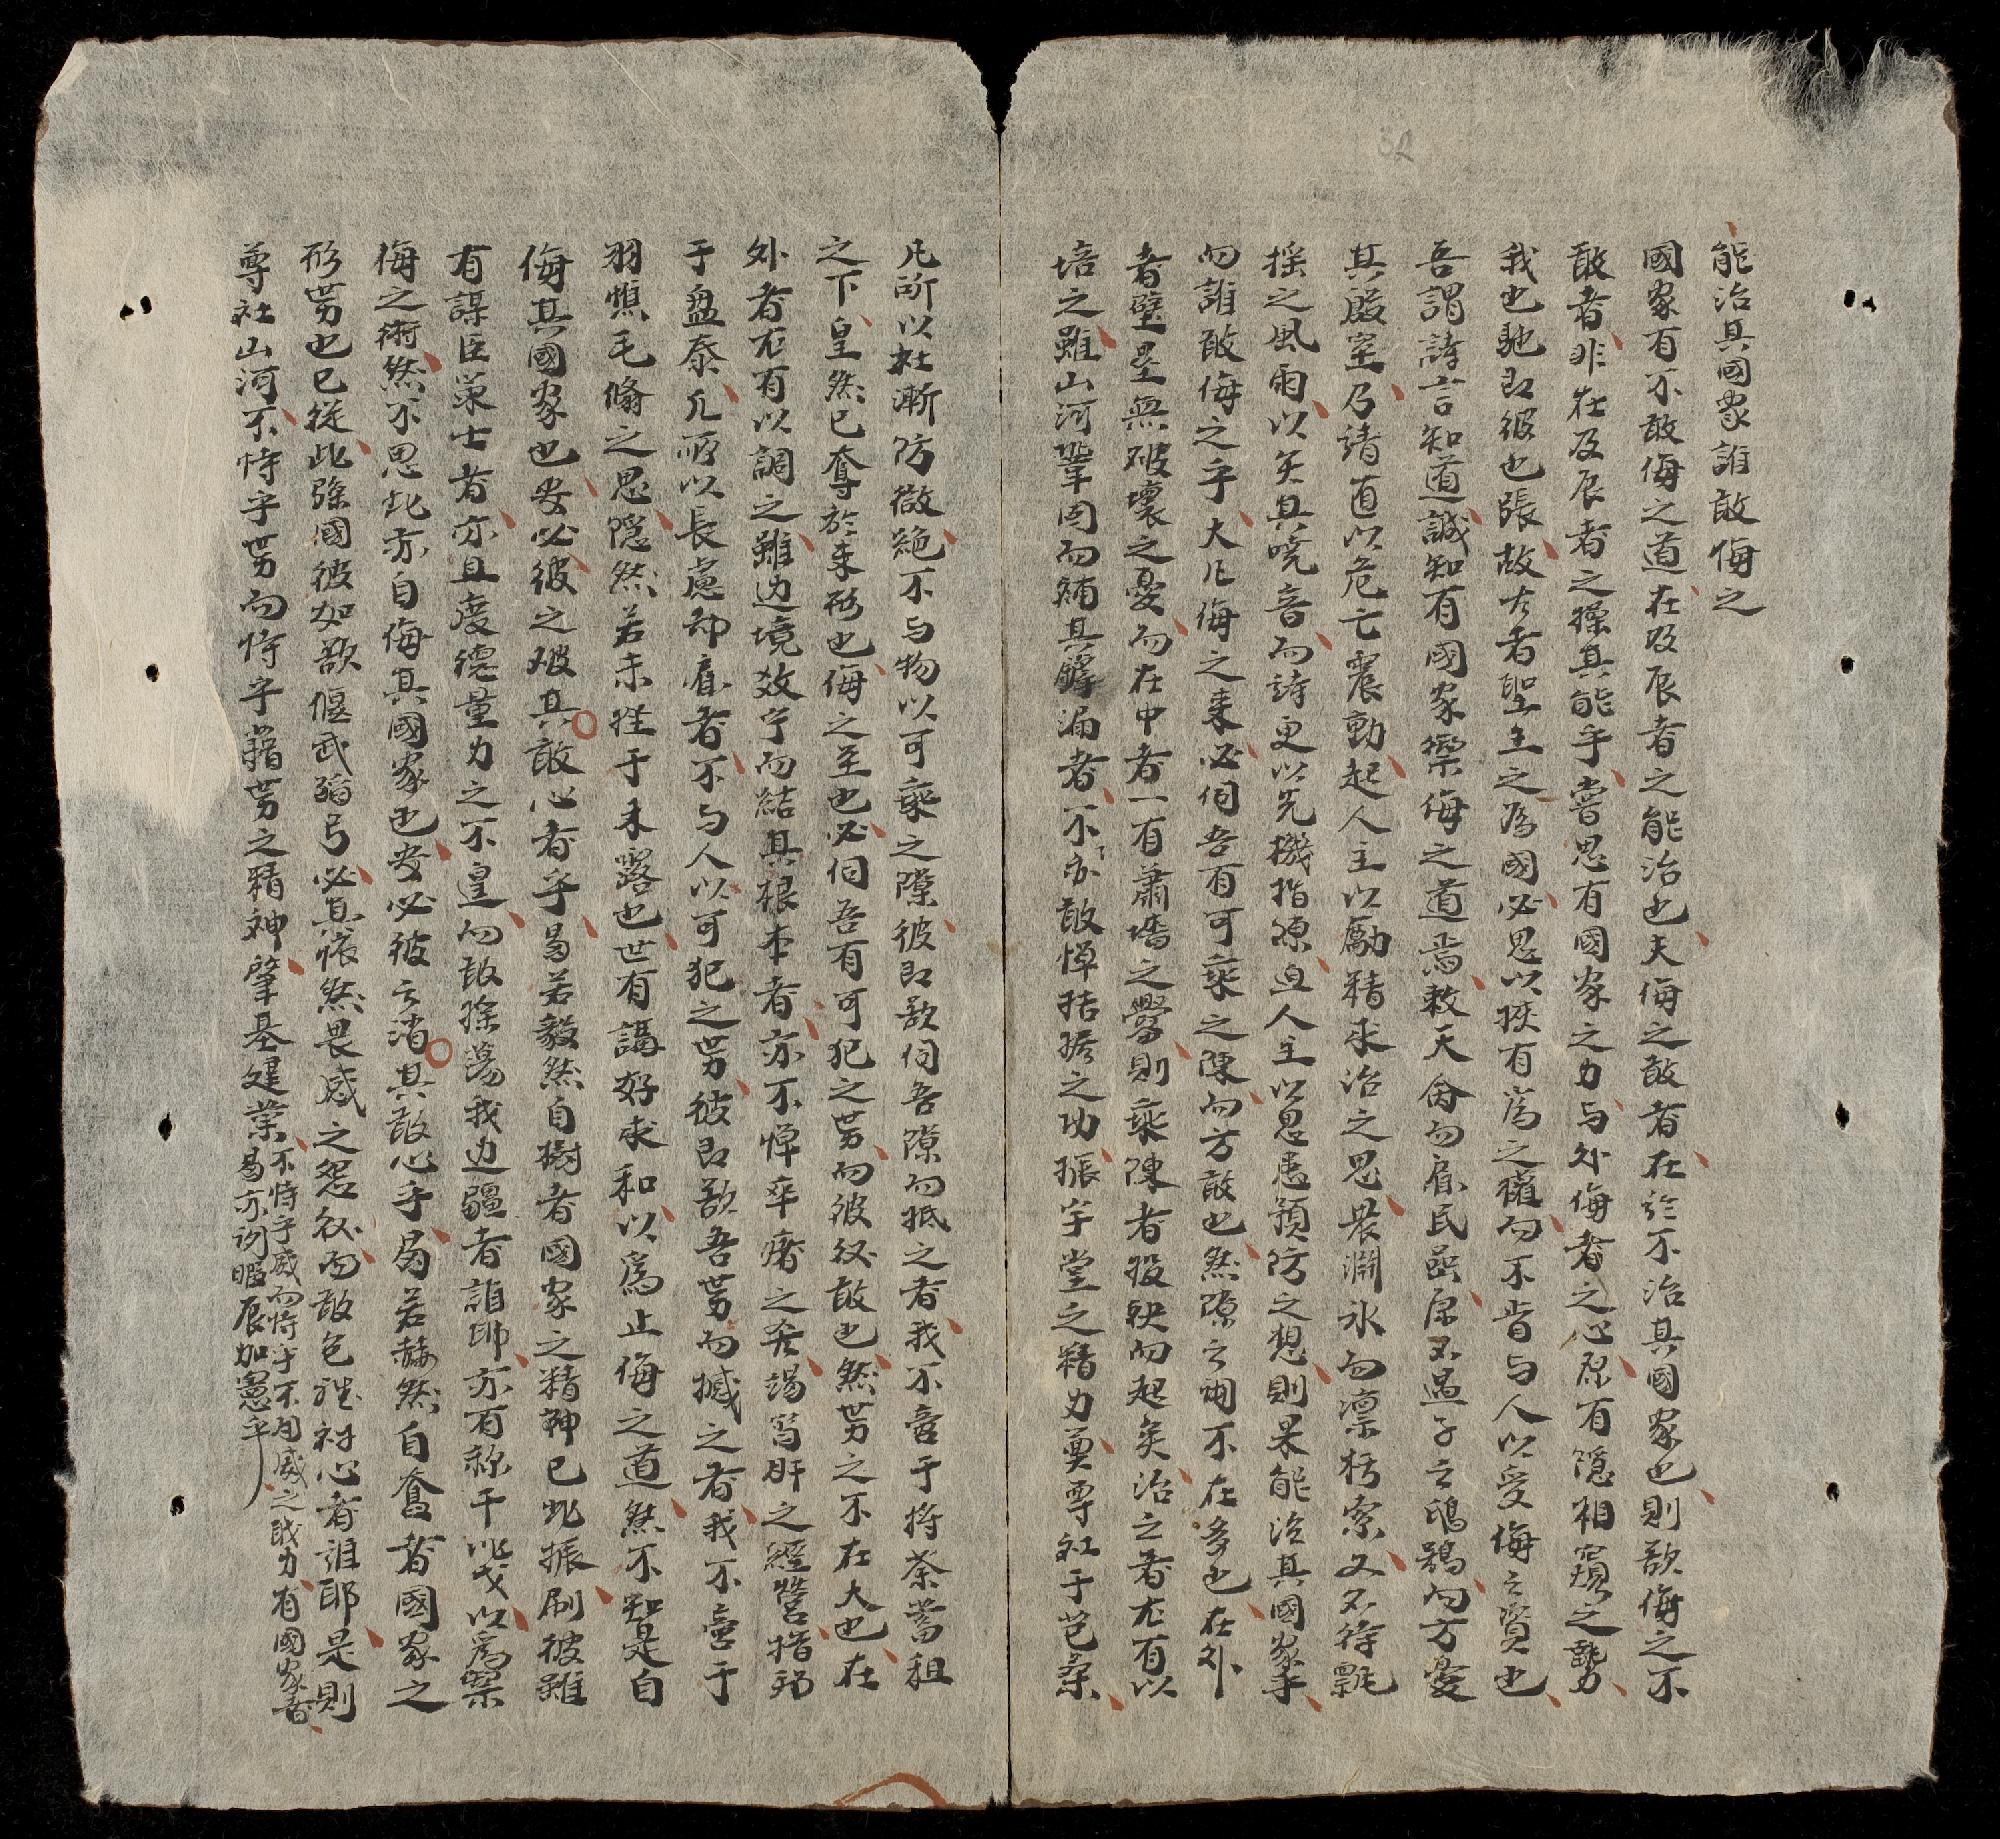 能治其國家誰敢侮之
國家有不敢侮之道在及辰者之能治也夫侮之敢者在於不治其國家也則欲侮之不
敢者非在及辰者之操其能乎嘗思有國家之力与外侮者之心原有隱相窺之勢
我也馳即彼也張故古者聖主之為國必思以挾有為之權而不肯与人以受侮之資也
吾謂詩言知道誠知有國家禦侮之道焉敕天命而雇民嵒原不過子之鴟鴞而方憂
其殷室乃諸直以危亡震動起人主以勵精求治之思畏淵氷而凛朽索又不待飄
搖之風雨以矢其嘵音而詩更以先機指原直人主以思患預防之想則果能治其國家乎
而誰敢侮之乎大凡侮之来必伺吾有可乘之隙而方敢也然隙之開不在多也在外
者壁壘無破壞之憂而在中者一有蕭墻之釁則乘隙者投袂而起矣治之者尤有以
培之雖山河鞏固而補其罅漏者不亦敢憚拮据之功振宇堂之精力奠尊社于苞桑
凡所以杜漸防微絶不与物以可乘之隙彼即欲伺吾隙而抵之者我不啻于捋荼蓄租
之下皇然已奪於未形也侮之至也必伺吾有可犯之势而彼敛敢也然势之不在大也在
外者尤有以調之雖边境效宁而結其根本者亦不憚卒瘏之告竭宵旰之經營措邦
于盘泰凡所以長慮却雇者不与人以可犯之势彼即欲吾势而撼之者我不啻于
羽憔毛翛之思隐然若未徃于未露也世有講好求和以為止侮之道然不知是自
侮其國家也安必彼之破其敢心者乎曷若毅然自樹者國家之精神已兆振刷彼雖
有謀臣策士者亦且度德量力之不遑而敢搖蕩我边疆者誰耶亦有称干比戈以為禦
侮之術然不思此亦自侮其國家也安必彼之消其敢心乎曷若赫然自奮者國家之
形势也已從此強國彼如欲偃武弨弓必其悵然畏威之怨敛而敢包禍心者誰耶是則
尊社山河不恃乎势而恃乎藉势之精神肇基建業不恃乎威而恃乎不用威之哉力有國家者
曷亦沕暇辰加憲乎